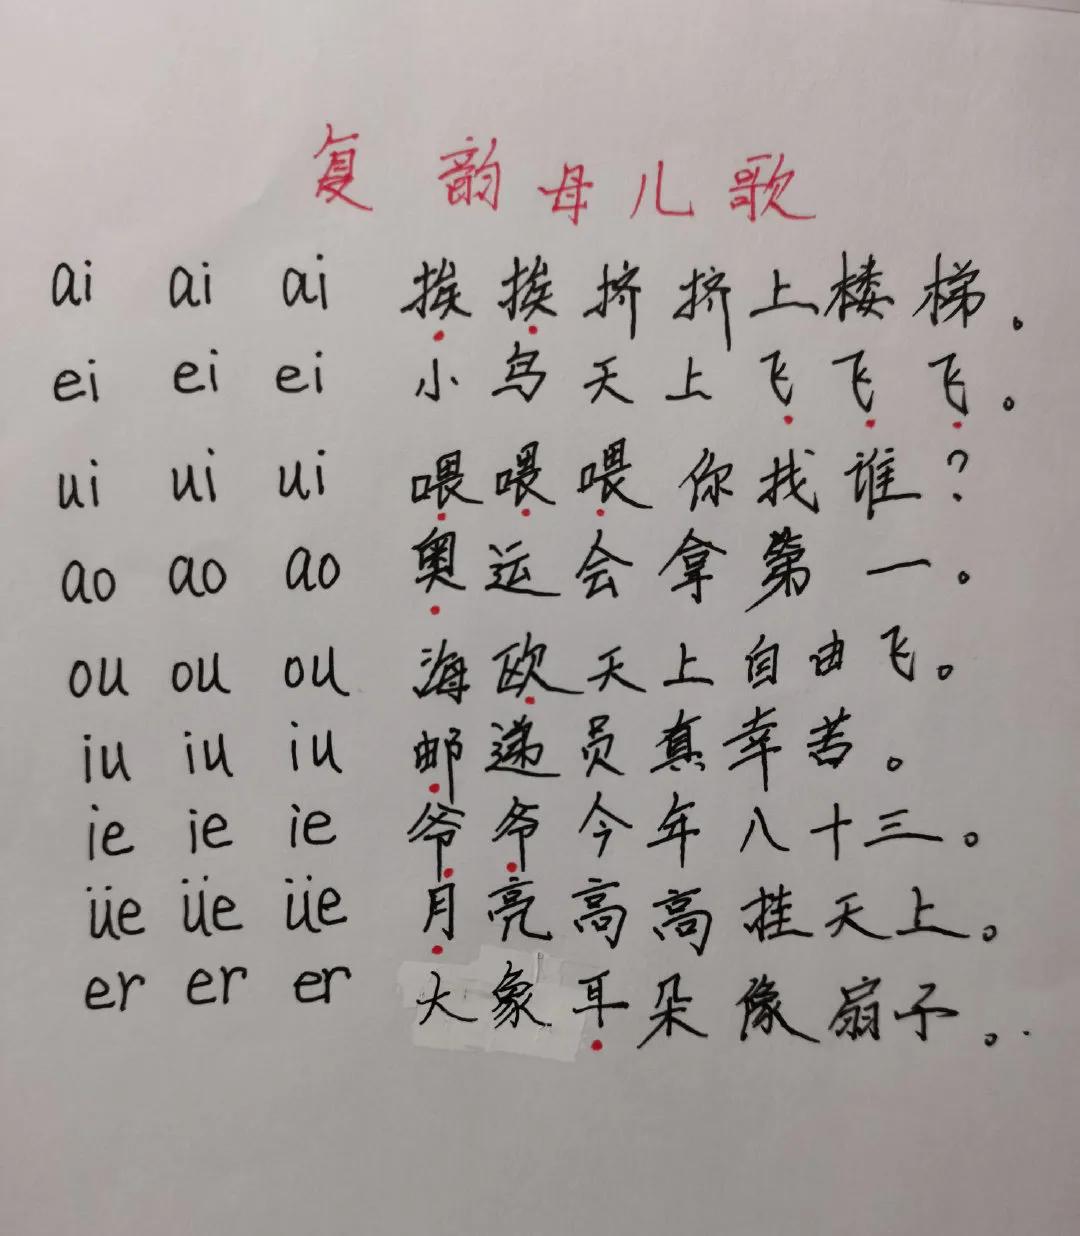 复韵母儿歌
ai ai ai 挨挨挤挤上楼梯。
ei ei ei 小鸟天上飞飞飞。
ui ui ui 喂喂喂你找谁?
ao ao ao 奥运会拿第一。
ou ou ou 海欧天上自由飞。
iu iu iu 邮递员真幸苦。
ie ie ie 爷爷今年八十三。
üe üe üe 月亮高高挂天上。
er er er 大象耳朵像扇子。